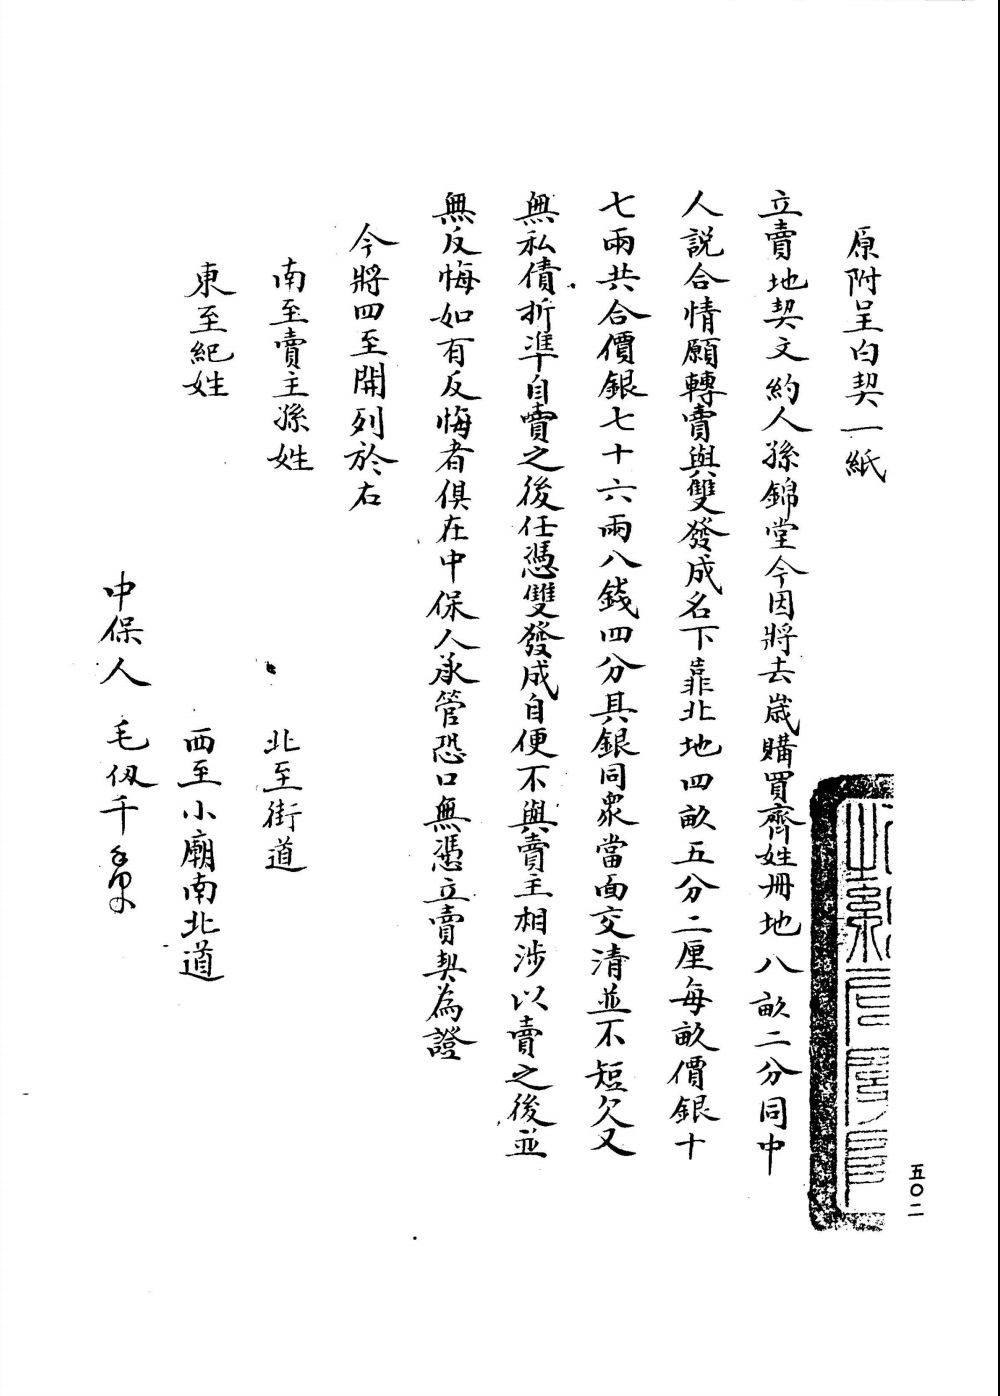 原附呈白契一紙
立賣地契文約人孫錦堂今因將去歲購買齊姓冊地八畝二分同中
人説合情願轉賣與雙發成名下靠北地四畝五分二厘每畝價銀十
七兩共合價銀七十六兩八錢四分具銀同衆當面交清並不短欠又
無私債折準自賣之後任憑雙發成自便不與賣主相涉以賣之後並
無反悔如有反悔者俱在中保人承管恐口無憑立賣契為證
今將四至開列於右
南至賣主孫姓 北至街道
東至紀姓 西至小廟南北道
中保人 毛仭千
五〇二